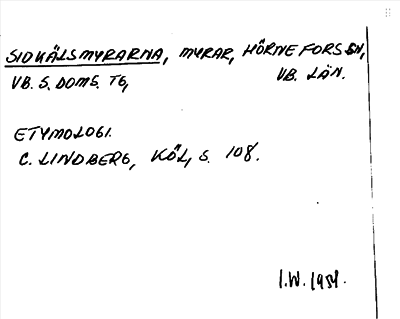 SIDKÄLSMYRARNA, MYRAR, HÖRNEFORS SN,
VB. S. DOMS. TG, VB. LÄN.
ETYMOLOGI.
C. LINDBERG, KÖL, S. 108.
I.W. 1951.